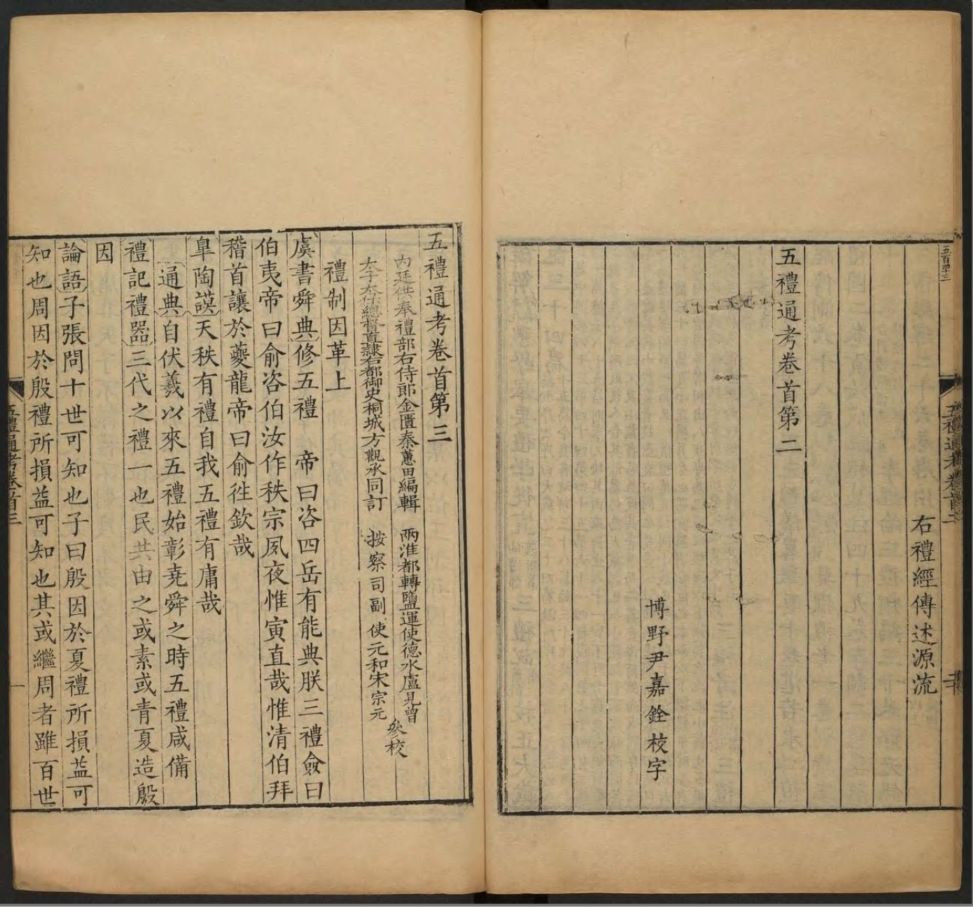 右禮經傳述源流
五禮通考卷首第二
博野尹嘉銓校字
五禮通考卷首二
五禮通考卷首第三
內廷供奉禮部右侍郎金匱秦蕙田編輯
兩淮都轉鹽運使德水盧見曾
太子太保總督直隸右都御史桐城方觀承同訂
按察司副使元和宋宗元
參校
禮制因革上
虞書舜典修五禮 帝曰咨四岳有能典朕三禮僉曰
伯夷帝曰俞咨伯汝作秩宗夙夜惟寅直哉惟清伯拜
稽首讓於夔龍帝曰俞往欽哉
皐陶謨天秩有禮自我五禮有庸哉
通典自伏羲以來五禮始彰堯舜之時五禮咸備
禮記禮器三代之禮一也民共由之或素或青夏造殷
因
論語子張問十世可知也子曰殷因於夏禮所損益可
知也周因於殷禮所損益可知也其或繼周者雖百世
五禮通考卷首三
一